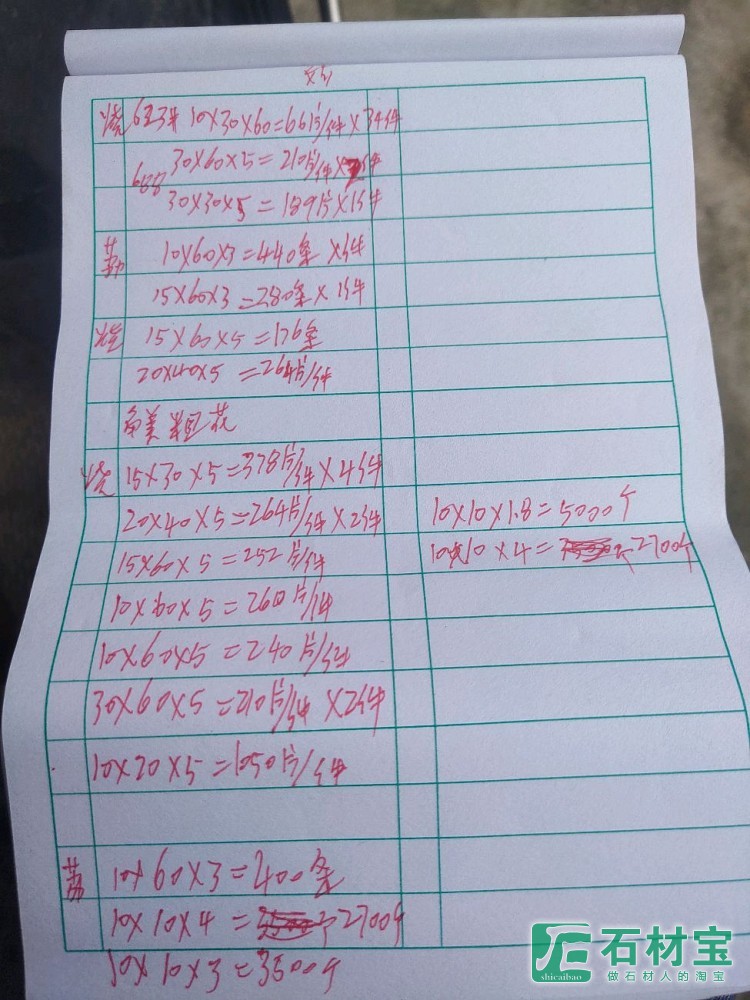 烧 623# 10×30×60=66片/件×34件
688 30×60×5=210片/件×件
30×30×5=189片×1件
荔 10×60×3=440条×件
15×60×3=280条×1件
烧 15×60×5=176条
20×40×5=264片/件
粗花
烧 15×30×5=378片/件×4件
20×40×5=264片/件×2件
15×60×5=252片/件
10××5=260片/件
10×60×5=240片/件
30×60×5=210片/件×2件
10×20×5=1050片/件
荔 10×60×3=400条
10×10×4=2700个
10×10×3=3500个
10×10×1.8=5000个
10×10×4=2700个
石材宝
shicaibao
做石材人的淘宝